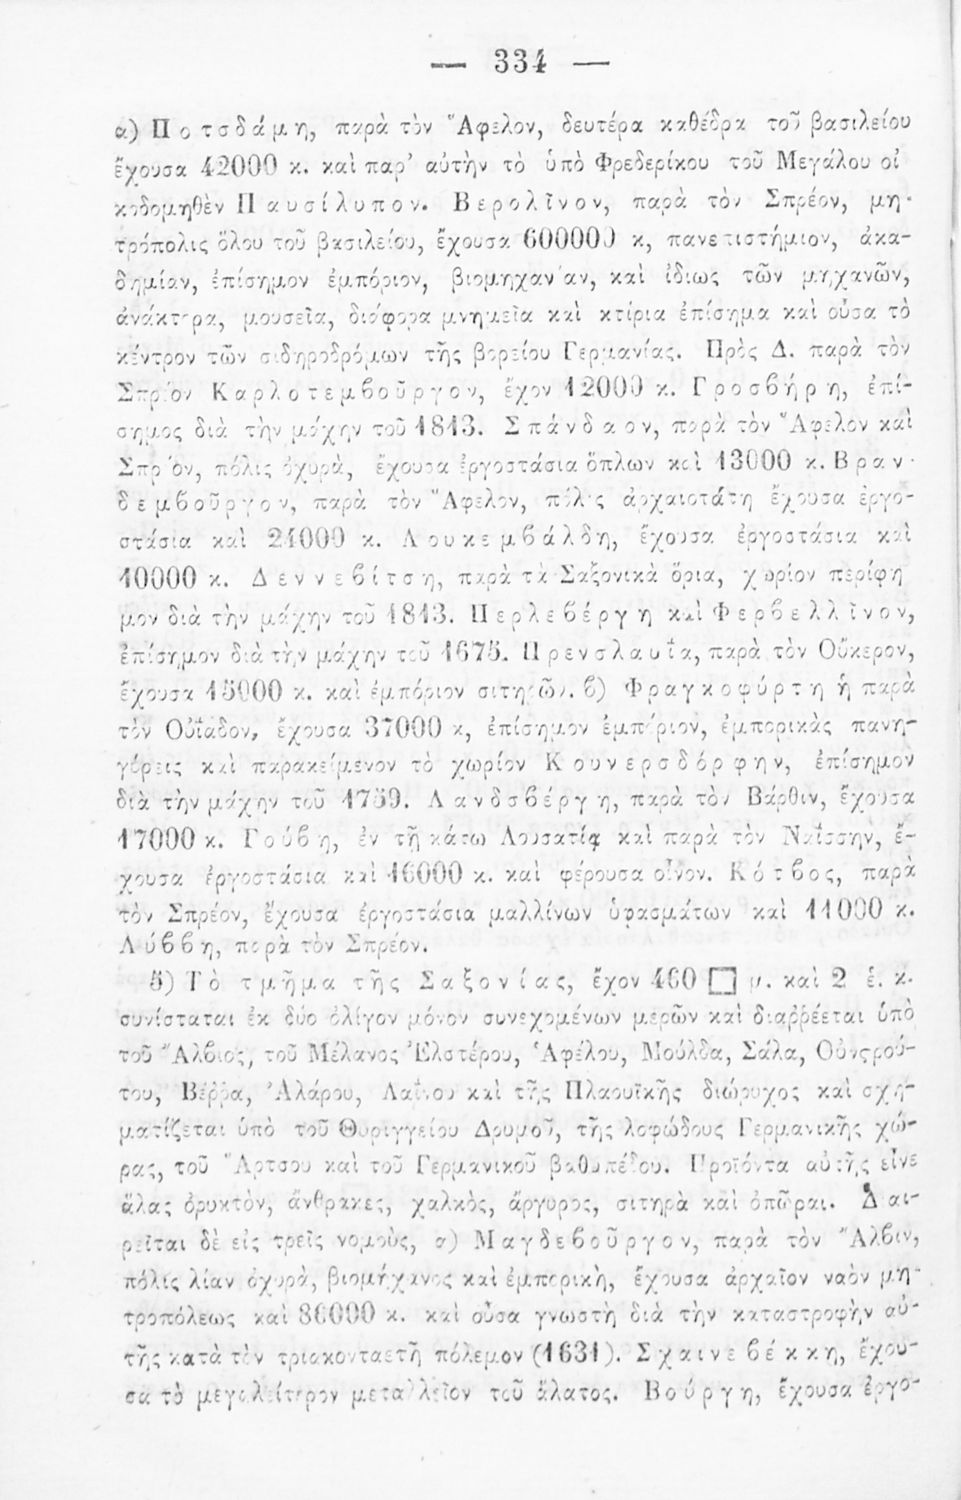 — 334 —
α) Ποτσδάμη, παρὰ τὸν Ἄφελον, δευτέρα καθέδρα τοῦ βασιλείου
ἔχουσα 42000 κ. καὶ παρ' αὐτὴν τὸ ὑπὸ Φρεδερίκου τοῦ Μεγάλου οἰ
κοδομηθὲν Παυσίλυπον. Βερολῖνον, παρὰ τὸν Σπρέον, μη-
τρόπολις ὅλου τοῦ βασιλείου, ἔχουσα 600000 κ, πανεπιστήμιον, ἀκα-
δημίαν, ἐπίσημον ἐμπόριον, βιομηχανίαν, καὶ ἰδίως τῶν μηχανῶν,
ἀνάκτορα, μουσεῖα, διάφορα μνημεῖα καὶ κτίρια ἐπίσημα καὶ οὖσα τὸ
κέντρον τῶν σιδηροδρόμων τῆς βορείου Γερμανίας. Πρὸς Δ. παρὰ τὸν
Σπρέον Καρλοτεμβοῦργον, ἔχον 12000 κ. Γροσβήρη, ἐπί-
σημος διὰ τὴν μάχην τοῦ 1813. Σπάνδαον, παρὰ τὸν Ἄφελον καὶ
Σπρέον, πόλις ὀχυρὰ, ἔχουσα ἐργοστάσια ὅπλων καὶ 13000 κ. Βραν-
δεμβοῦργον, παρὰ τὸν Ἄφελον, πόλις ἀρχαιοτάτη ἔχουσα ἐργο-
στάσια καὶ 24000 κ. Λουκεμβάλδη, ἔχουσα ἐργοστάσια καὶ
10000 κ. Δεννεβίτση, παρὰ τὰ Σαξονικὰ ὅρια, χωρίον περίφη
μον διὰ τὴν μάχην τοῦ 1813. Περλεβέργη καὶ Φερβελλῖνον,
ἐπίσημον διὰ τὴν μάχην τοῦ 1675. Πρενσλαυΐα, παρὰ τὸν Οὔκερον,
ἔχουσα 15000 κ. καὶ ἐμπόριον σιτηρῶν. β) Φραγκοφύρτη ἡ παρὰ
τὸν Οὐΐαδον, ἔχουσα 37000 κ, ἐπίσημον ἐμπόριον, ἐμπορικὰς πανη-
γύρεις καὶ παρακείμενον τὸ χωρίον Κουνερσδόρφην, ἐπίσημον
διὰ τὴν μάχην τοῦ 1759. Λανδσβέργη, παρὰ τὸν Βάρθιν, ἔχουσα
17000 κ. Γούβη, ἐν τῇ κάτω Λουσατίᾳ καὶ παρὰ τὸν Ναΐσσην, ἔ-
χουσα ἐργοστάσια καὶ 16000 κ. καὶ φέρουσα οἶνον. Κότβος, παρὰ
τὸν Σπρέον, ἔχουσα ἐργοστάσια μαλλίνων ὑφασμάτων καὶ 11000 κ.
Λύββη, παρὰ τὸν Σπρέον.
5) Τὸ τμῆμα τῆς Σαξονίας, ἔχον 460 □ μ. καὶ 2 ἑ. κ.
συνίσταται ἐκ δύο ὀλίγον μόνον συνεχομένων μερῶν καὶ διαῤῥέεται ὑπὸ
τοῦ Ἄλβιος, τοῦ Μέλανος Ἐλστέρου, Ἀφέλου, Μούλδα, Σάλα, Οὐνςρού-
του, Βέῤῥα, Ἀλάρου, Λαΐνου καὶ τῆς Πλαουϊκῆς διώρυχος καὶ σχη-
ματίζεται ὑπὸ τοῦ Θυριγγείου Δρυμοῦ, τῆς λοφώδους Γερμανικῆς χώ-
ρας, τοῦ Ἄρτσου καὶ τοῦ Γερμανικοῦ βαθυπέδου. Προϊόντα αὐτῆς εἶνε
ἅλας ὀρυκτὸν, ἄνθρακες, χαλκὸς, ἄργυρος, σιτηρὰ καὶ ὀπῶραι. Διαι-
ρεῖται δὲ εἰς τρεῖς νομοὺς, α) Μαγδεβοῦργον, παρὰ τὸν Ἄλβιν,
πόλις λίαν ὀχυρὰ, βιομήχανος καὶ ἐμπορικὴ, ἔχουσα ἀρχαῖον ναὸν μη-
τροπόλεως καὶ 86000 κ. καὶ οὖσα γνωστὴ διὰ τὴν καταστροφὴν αὐ-
τῆς κατὰ τὸν τριακονταετῆ πόλεμον (1631). Σχαινεβέκκη, ἔχου-
σα τὸ μεγαλείτερον μεταλλεῖον τοῦ ἅλατος. Βούργη, ἔχουσα ἐργο-